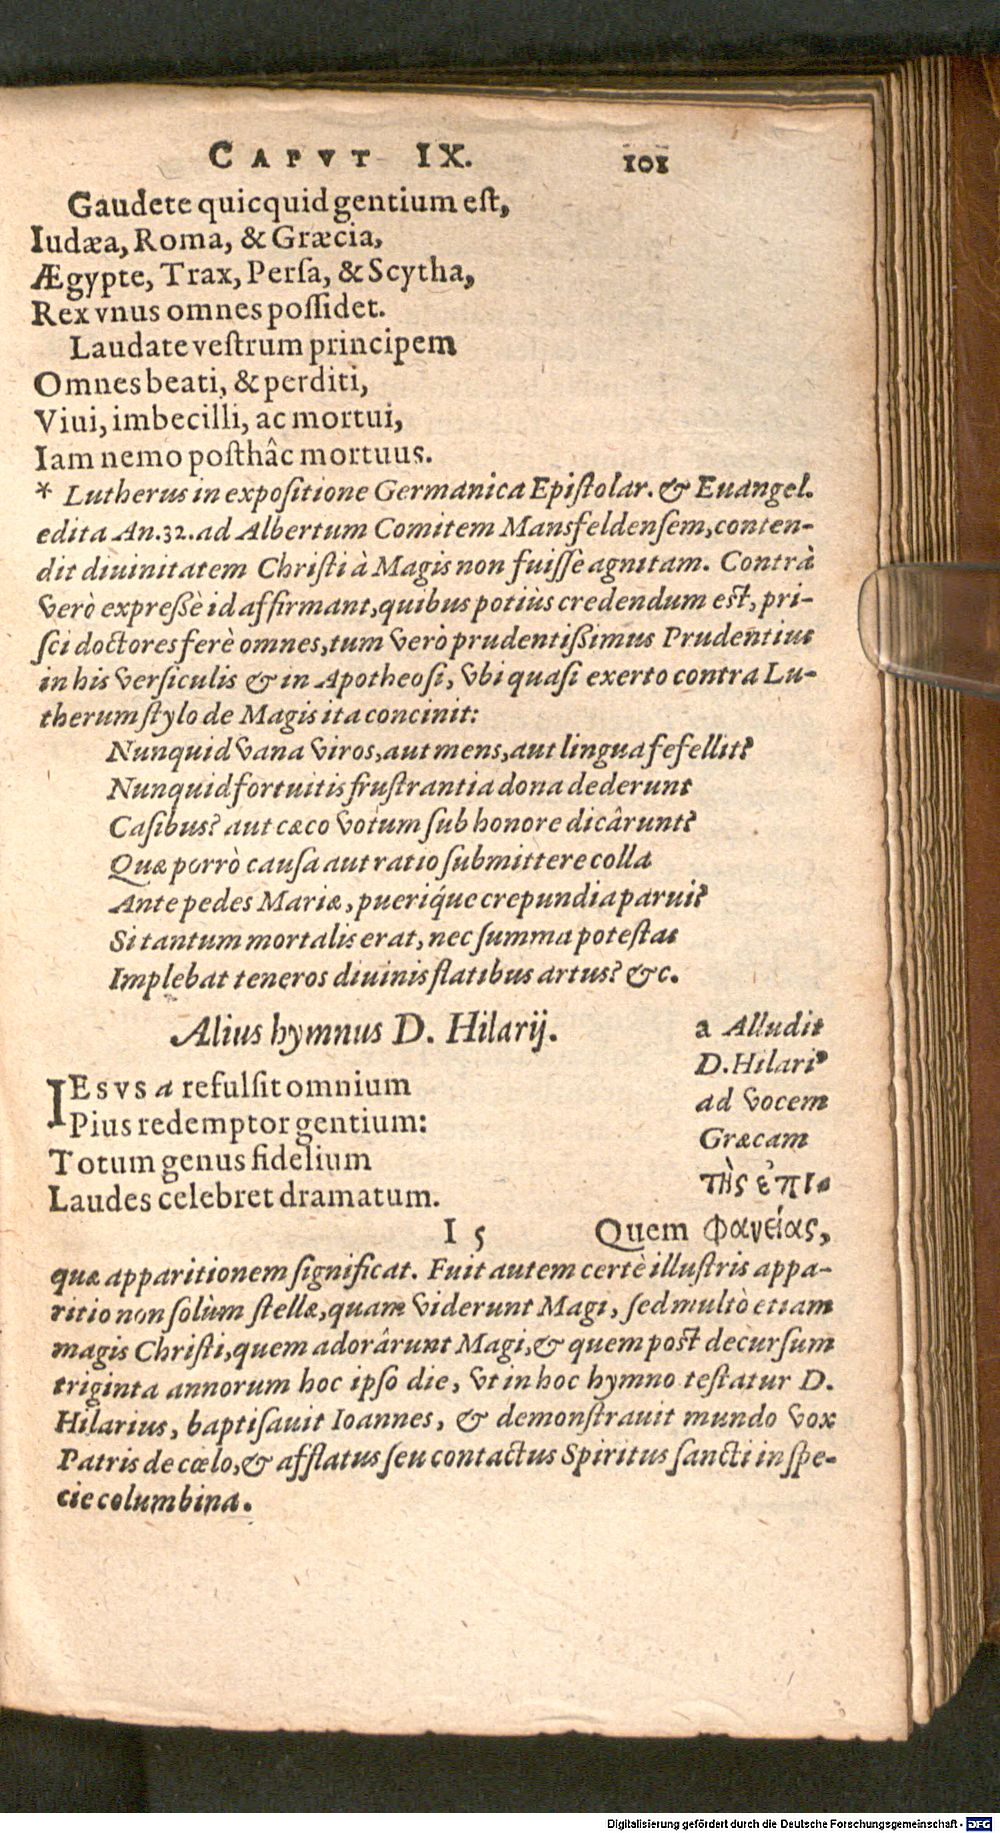 CAPVT IX. 101
Gaudete quicquid gentium est,
Iudæa, Roma, & Græcia,
Ægypte, Trax, Persa, & Scytha,
Rex vnus omnes possidet.
Laudate vestrum principem
Omnes beati, & perditi,
Viui, imbecilli, ac mortui,
Iam nemo posthâc mortuus.
* Lutherus in expositione Germanica Epistolar. & Euangel.
edita An. 32. ad Albertum Comitem Mansfeldensem, conten-
dit diuinitatem Christi à Magis non fuissè agnitam. Contrà
verò expreßè id affirmant, quibus potiùs credendum est, pri-
sci doctores ferè omnes, tum verò prudentißimus Prudentius
in his versiculis & in Apotheosi, vbi quasi exerto contra Lu-
therum stylo de Magis ita concinit:
Nunquid vana viros, aut mens, aut lingua fefellit?
Nunquid fortuitis frustrantia dona dederunt
Casibus? aut cæco votum sub honore dicârunt?
Quæ porrò causa aut ratio submittere colla
Ante pedes Mariæ, pueriq́ue crepundia parui?
Si tantum mortalis erat, nec summa potestas
Implebat teneros diuinis flatibus artus? &c.
Alius hymnus D. Hilarij.
IEsvs a refulsit omnium
Pius redemptor gentium:
Totum genus fidelium
Laudes celebret dramatum.
a Alludit
D. Hilari⁹
ad vocem
Græcam
τῆς ἐπι-
I 5 Quem φανείας,
quæ apparitionem significat. Fuit autem certè illustris appa-
ritio non solùm stellæ, quam viderunt Magi, sed multò etiam
magis Christi, quem adorârunt Magi, & quem post decursum
triginta annorum hoc ipso die, vt in hoc hymno testatur D.
Hilarius, baptisauit Ioannes, & demonstrauit mundo vox
Patris de cœlo, & afflatus seu contactus Spiritus sancti in spe-
cie columbina.
Digitalisierung gefördert durch die Deutsche Forschungsgemeinschaft - DFG